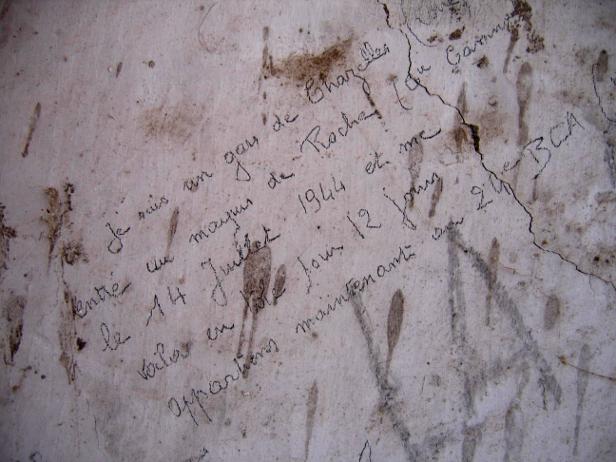 Je suis un gars de Chazelles
entré au maquis de Roche (ou Garnier
le 14 Juillet 1944 et me
voila en tole pour 12 jours
appartiens maintenant au 24e BCA